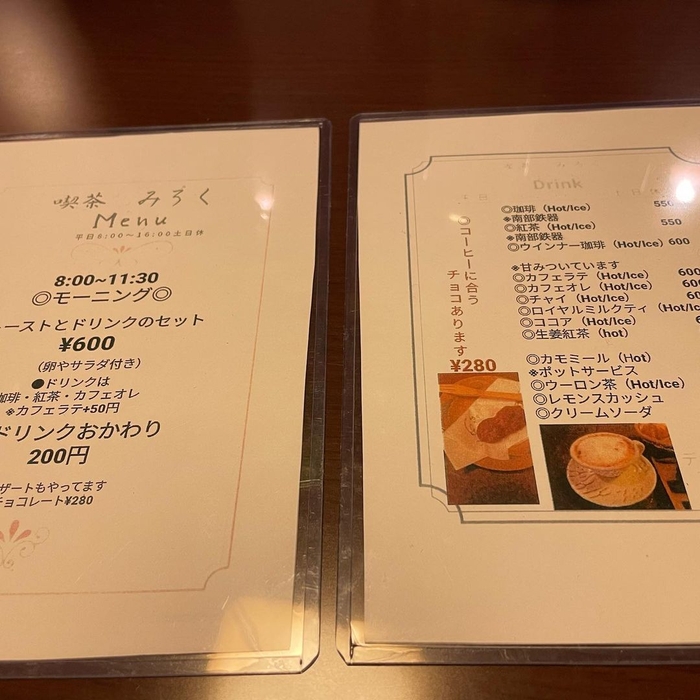 喫茶 みろく
Menu
平日8:00～16:00土日休
8:00~11:30
◎モーニング◎
ーストとドリンクのセット
¥600
（卵やサラダ付き）
●ドリンクは
珈琲・紅茶・カフェオレ
※カフェラテ+50円
ドリンクおかわり
200円
ザートもやってます
チョコレート¥280
Drink
◎珈琲（Hot/Ice） 550
※南部鉄器
◎紅茶（Hot/Ice） 550
※南部鉄器
◎ウインナー珈琲（Hot/Ice）600
※甘みついています
◎カフェラテ（Hot/Ice） 600
◎カフェオレ（Hot/Ice） 600
◎チャイ（Hot/Ice） 60
◎ロイヤルミルクティ（Hot/Ice
◎ココア（Hot/Ice）
◎生姜紅茶（hot）
◎カモミール（Hot）
※ポットサービス
◎ウーロン茶（Hot/Ice）
◎レモンスカッシュ
◎クリームソーダ
◎コーヒーに合う
チョコあります
¥280